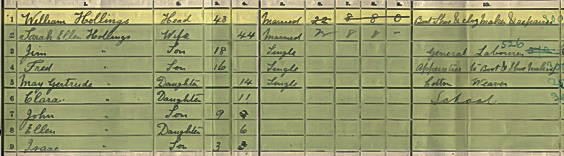 1 William Hollings Head 43 Married 22 8 8 0 Boot Shoe & Clog Maker & repairer
2 Sarah Ellen Hollings Wife 44 Married 22 8 8 -
3 Jim " Son 18 Single General Labourer
4 Fred " Son 16 Single Apprentice to Boot & Shoe Maker
5 May Gertrude " Daughter 14 Single Cotton Weaver
6 Clara " Daughter 11 School
7 John " Son 9
8 Ellen " Daughter 6
9 Isaac " Son 3